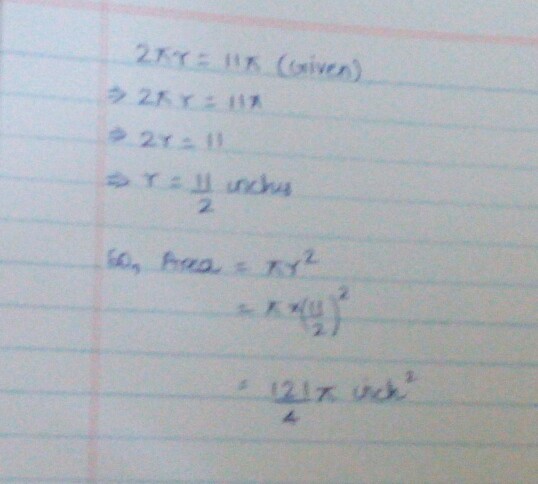 2πr = 11π (Given)
⇒ 2πr = 11π
⇒ 2r = 11
⇒ r = 11/2 inches
So, Area = πr²
= π×(11/2)²
= 121/4 π inch²